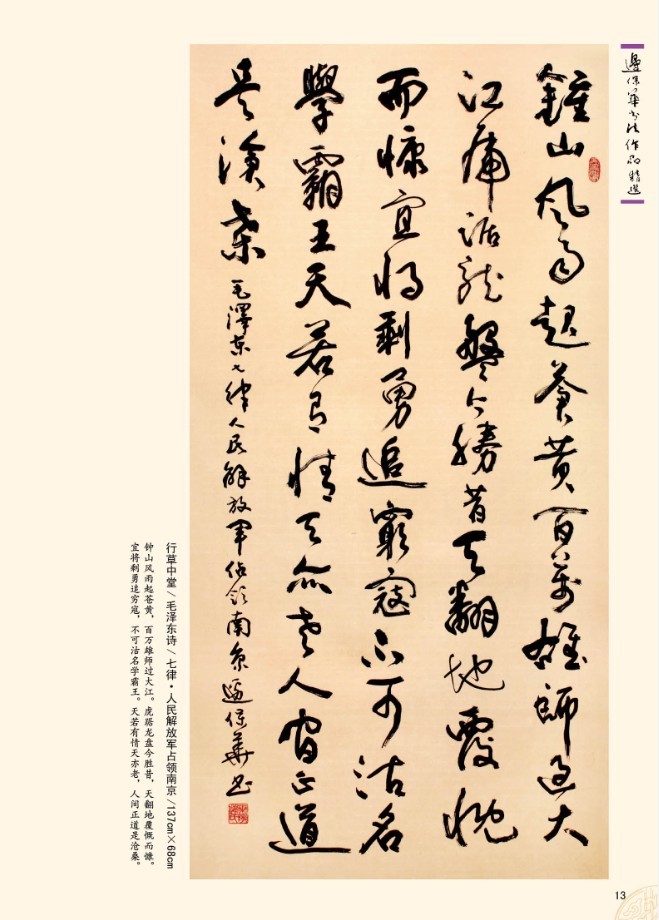 邊保華書法作品精選
鍾山風雨起蒼黃百萬雄師過大
江虎踞龍盤今勝昔天翻地覆慨
而慷宜將剩勇追窮寇不可沽名
學霸王天若有情天亦老人間正道
是滄桑 毛澤東七律人民解放軍佔領南京 邊保華書
行草中堂/毛泽东诗/七律·人民解放军占领南京/137cm×68cm
钟山风雨起苍黄，百万雄师过大江。虎踞龙盘今胜昔，天翻地覆慨而慷。
宜将剩勇追穷寇，不可沽名学霸王。天若有情天亦老，人间正道是沧桑。
13